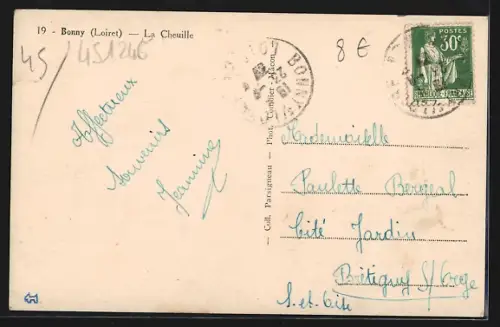 19 - Bonny (Loiret) — La Cheuille
45 / 451246
8 €
BONNY S/
POSTES
30c
Affectueux
souvenirs
Jeannine
Coll. Parsigneau — Phot. Combier Macon
Mademoiselle
Paulette Bergeal
Cité Jardin
Brétigny S/ Orge
S. et Oise